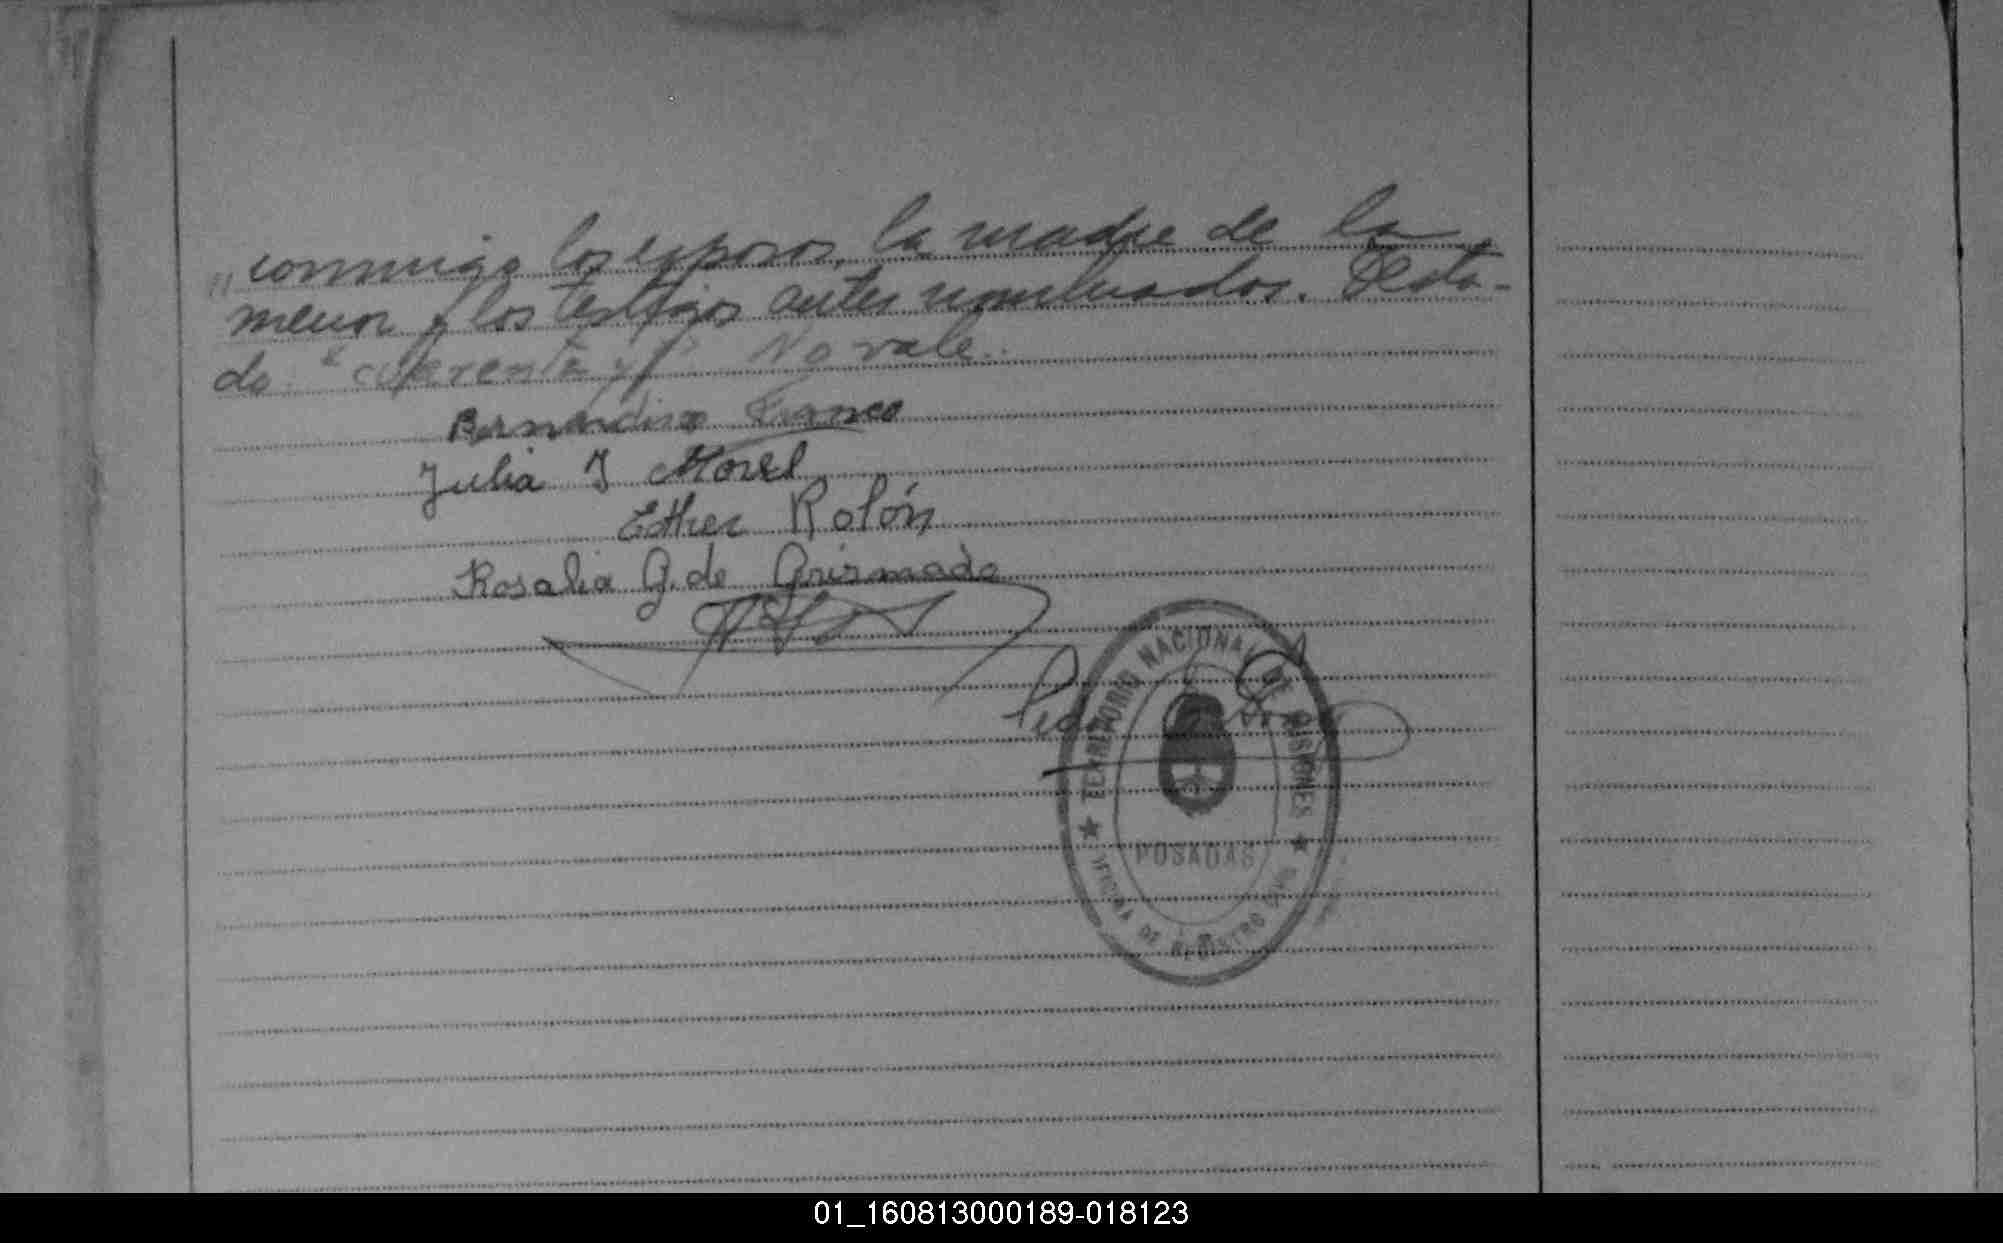 " conmigo los esposos, la madre de la
menor y los testigos antes nombrados. Testa-
do: "cuarenta y" No vale.
Bernardino Franco
Julia J Morel
Esther Rolón
Rosalia G. de Grismado
TERRITORIO NACIONAL DE MISIONES
POSADAS
OFICINA DE REGISTRO CIVIL
01_160813000189-018123